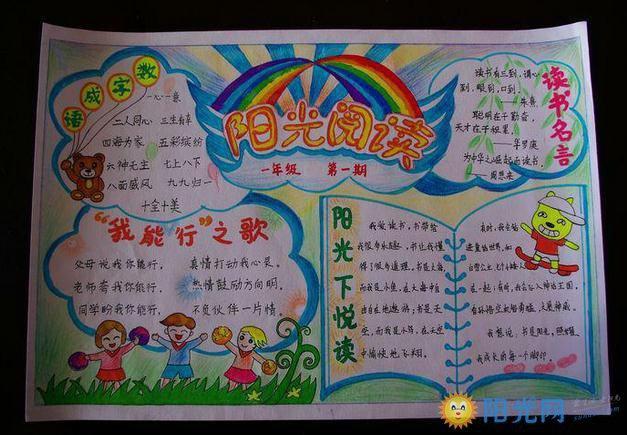 阳光阅读
一年级 第一期
数字成语
一心一意
二人同心 三生有幸
四海为家 五彩缤纷
六神无主 七上八下
八面威风 九九归一
十全十美
读书名言
读书有三到,谓心
到,眼到,口到。
——朱熹
聪明在于勤奋,
天才在于积累。
——华罗庚
为中华之崛起而读书。
——周恩来
“我能行”之歌
父母说我你能行,
真情打动我心灵。
老师寄我你能行,
热情鼓励方向明。
同学盼我你能行,
不负伙伴一片情。
阳光下悦读
我爱读书,书带给
我很多乐趣,书让我懂
得了很多道理。书是大海,
而我是小鱼,在大海中自
由自在地遨游;书是天
空,而我是小鸟,在天空
中愉快地飞翔。
有时,我会钻
进童话世界,和
在一起;有时,我会钻入神话王国,
我想说,书是阳光,照耀着
我成长的每一个脚印。
阳光网